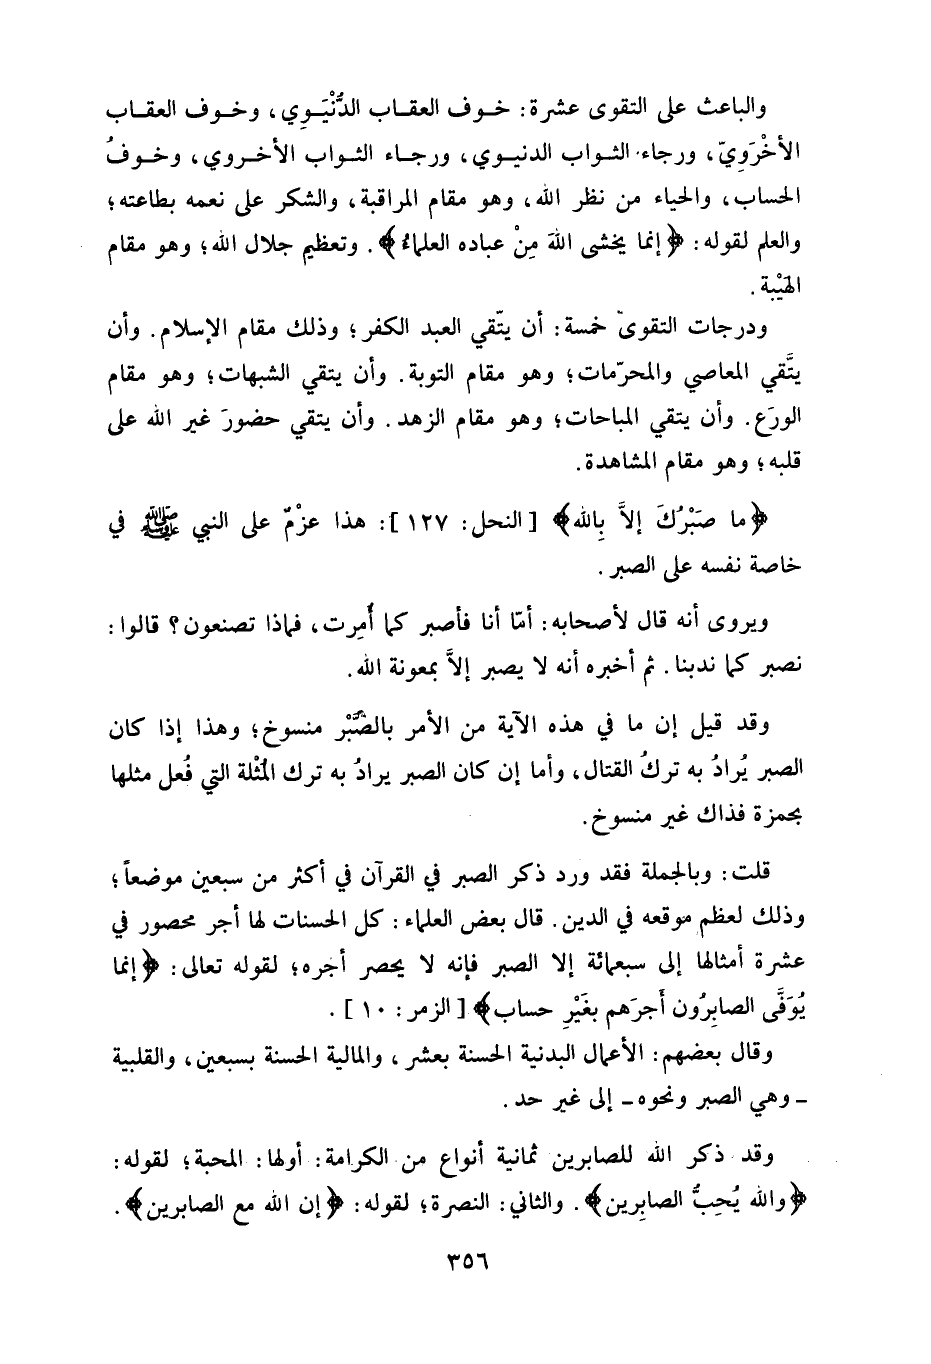 والباعث على التقوى عشرة: خـوف العقـاب الدُّنْيَـوِي، وخـوف العقـاب
الأخْرَوِيّ، ورجاء الثـواب الدنيـوي، ورجـاء الثـواب الأخـروي، وخـوفُ
الحساب، والحياء من نظر الله، وهو مقام المراقبة، والشكر على نعمه بطاعته؛
والعلم لقوله: ﴿إنما يخشى اللهَ مِنْ عباده العلماءُ﴾. وتعظيم جلال الله؛ وهو مقام
الهَيْبة.
ودرجات التقوى خمسة: أن يتّقي العبد الكفر؛ وذلك مقام الإسلام. وأن
يتَّقي المعاصي والمحرّمات؛ وهو مقام التوبة. وأن يتقي الشبهات؛ وهو مقام
الورَع. وأن يتقي المباحات؛ وهو مقام الزهد. وأن يتقي حضورَ غير الله على
قلبه؛ وهو مقام المشاهدة.
﴿ما صَبْرُكَ إلاَّ بِالله﴾ [النحل: ١٢٧]: هذا عزْمٌ على النبي ﷺ في
خاصة نفسه على الصبر.
ويروى أنه قال لأصحابه: أمّا أنا فأصبر كما أُمِرت، فماذا تصنعون؟ قالوا:
نصبر كما ندبنا. ثم أخبره أنه لا يصبر إلاَّ بمعونة الله.
وقد قيل إن ما في هذه الآية من الأمر بالصَّبْر منسوخ؛ وهذا إذا كان
الصبر يُرادُ به تركُ القتال، وأما إن كان الصبر يرادُ به ترك المُثْلة التي فُعل مثلها
بحمزة فذاك غير منسوخ.
قلت: وبالجملة فقد ورد ذكر الصبر في القرآن في أكثر من سبعين موضعاً؛
وذلك لعظم موقعه في الدين. قال بعض العلماء: كل الحسنات لها أجر محصور في
عشرة أمثالها إلى سبعمائة إلا الصبر فإنه لا يحصر أجره؛ لقوله تعالى: ﴿إنما
يُوَفَّى الصابِرُون أَجرَهم بغَيْرِ حساب﴾ [الزمر: ١٠].
وقال بعضهم: الأعمال البدنية الحسنة بعشر، والمالية الحسنة بسبعين، والقلبية
ـ وهي الصبر ونحوه ـ إلى غير حد.
وقد ذكر الله للصابرين ثمانية أنواع من الكرامة: أولها: المحبة؛ لقوله:
﴿والله يُحِبُّ الصابِرين﴾. والثاني: النصرة؛ لقوله: ﴿إن الله مع الصابرين﴾.
٣٥٦